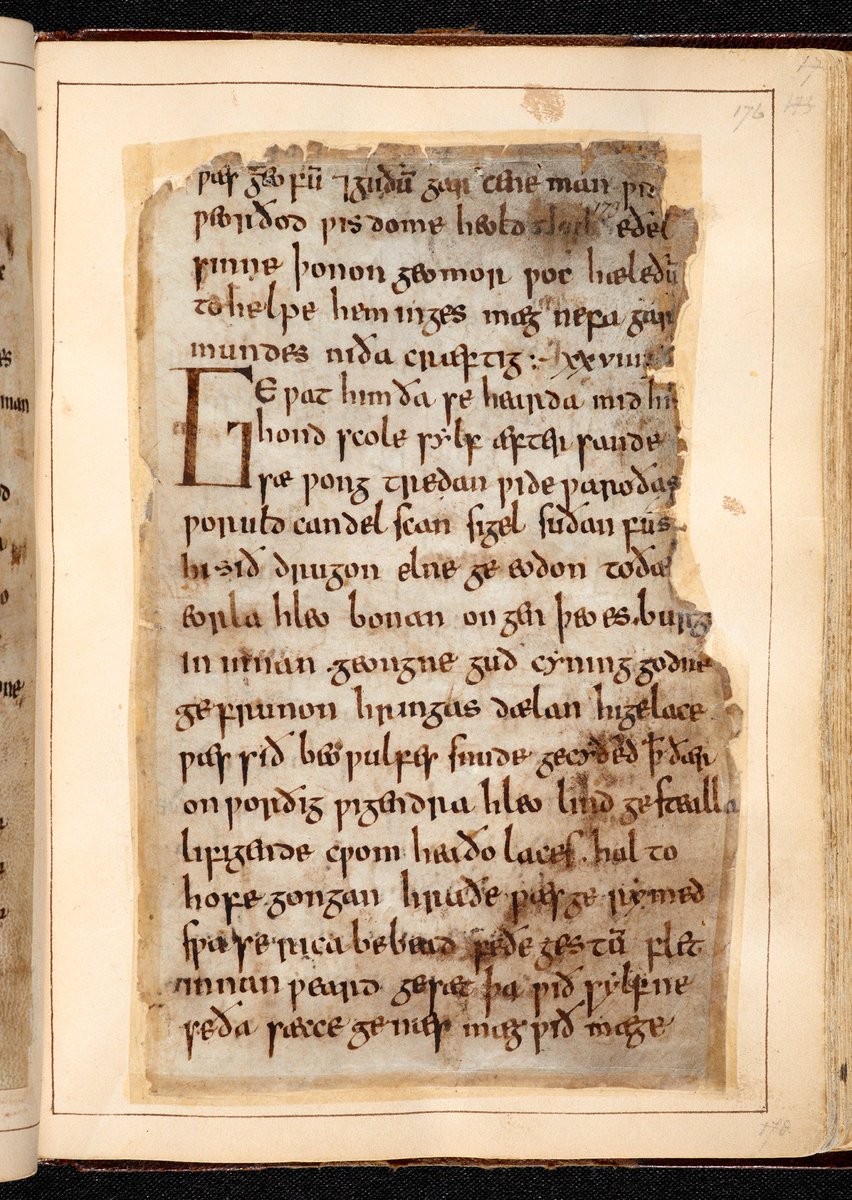 ƿæs geofū ⁊ guðū gar cene man ƿi
ƿeorðod ƿisdome heold eðel
sinne þonon geomor ƿoc hæleðū
to helpe heminges mæg nefa gar
mundes niða cræftig :- XXVIII
GE ƿat him ða se hearda mid hi
hond scole sylf æfter sande
sæ ƿong tredan ƿide ƿaroðas
ƿoruld candel scan sigel suðan fus
hi sið drugon elne ge eodon to ðæ
eorla hleo bonan on gen þeoes burg
in innan geongne guð cyning godne
ge frunon hringas dælan higelace
ƿæs sið beoƿulfes snude gecyðed ꝥ ðær
on ƿorðig ƿigendra hleo lind gestealla
lifigende cƿom heaðo laces hal to
hofe gongan hraðe ƿæs ge rymed
sƿa se rica be bead feðe gestū flet
innan ƿeard gesæt þa ƿið sylfne
se ða sæcce ge næs mæg ƿið mæge
176
178